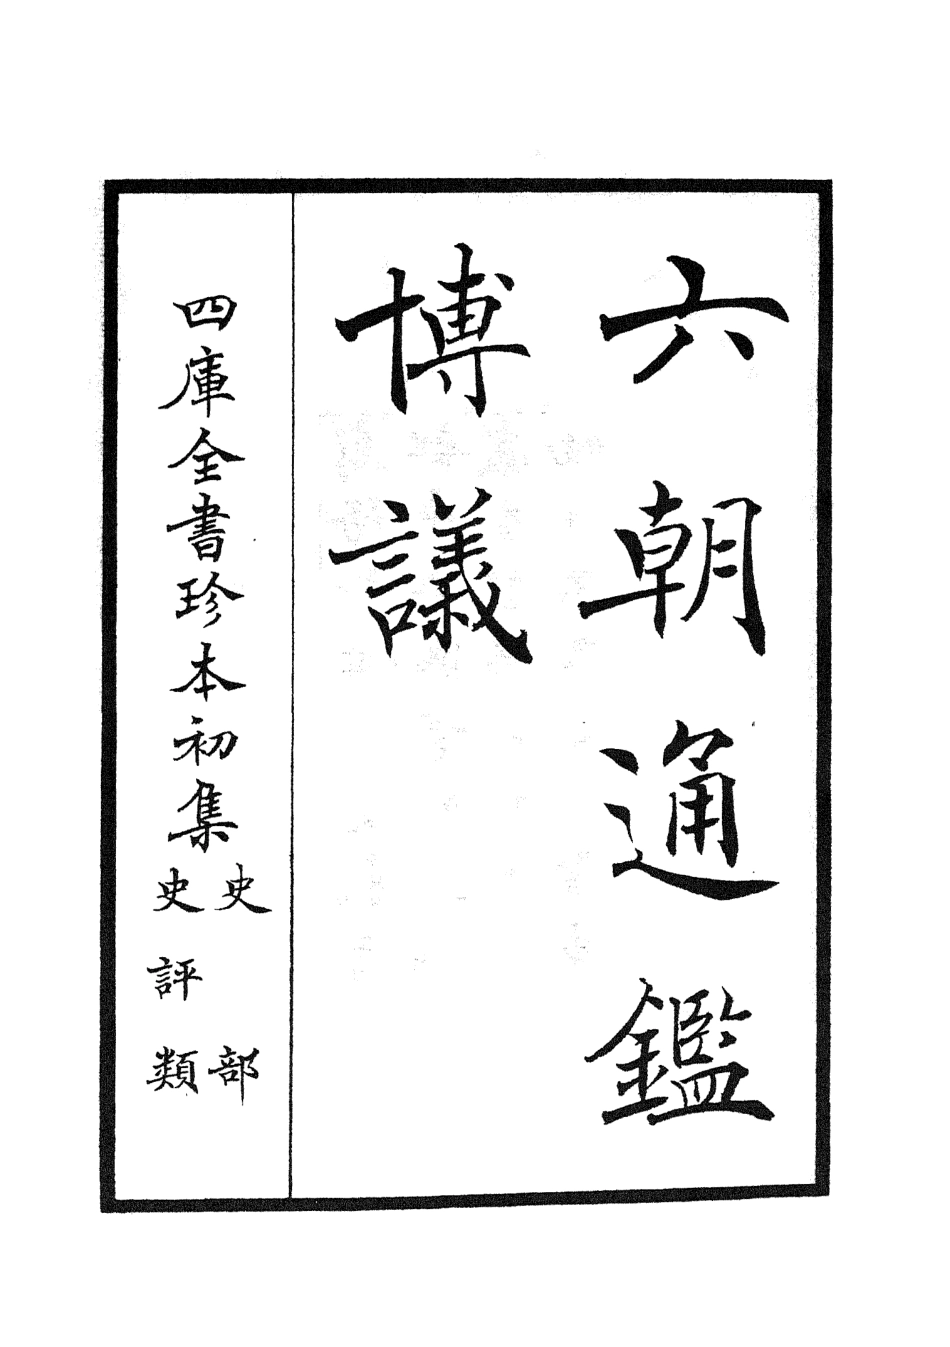 六朝通鑑
博議
四庫全書珍本初集
史部
史評類